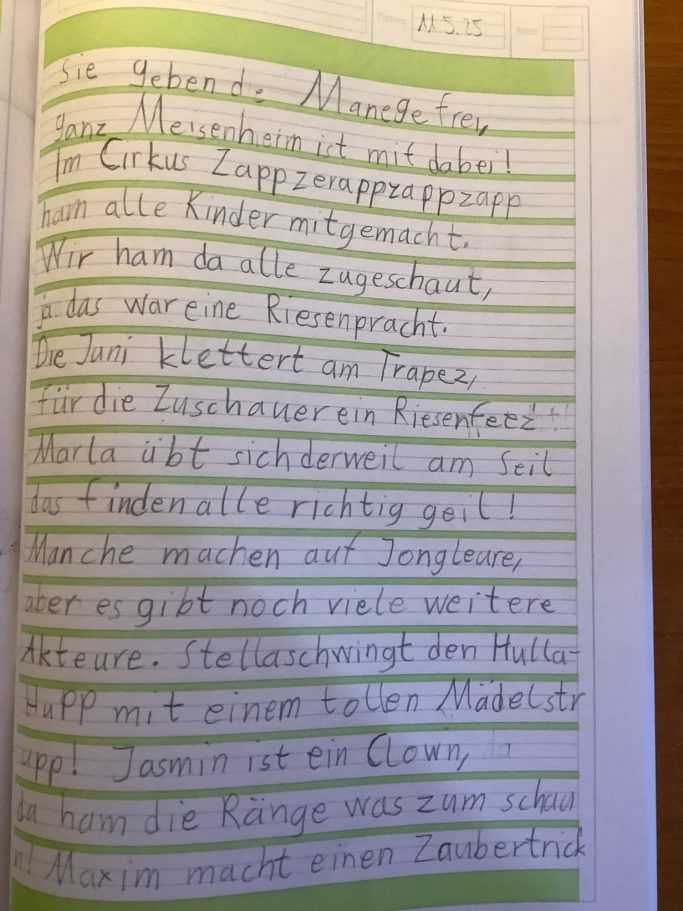 Datum 11.5.25 Blatt
Sie geben die Manege frei,
ganz Meisenheim ist mit dabei!
Im Cirkus Zappzerappzappzapp
ham alle Kinder mitgemacht.
Wir ham da alle zugeschaut,
ja das war eine Riesenpracht.
Die Juni klettert am Trapez,
für die Zuschauer ein Riesenfeez!
Marla übt sich derweil am Seil
das finden alle richtig geil!
Manche machen auf Jongleure,
aber es gibt noch viele weitere
Akteure. Stella schwingt den Hulla-
Hupp mit einem tollen Mädelstr
upp! Jasmin ist ein Clown, da
da ham die Ränge was zum schau
n! Maxim macht einen Zaubertrick